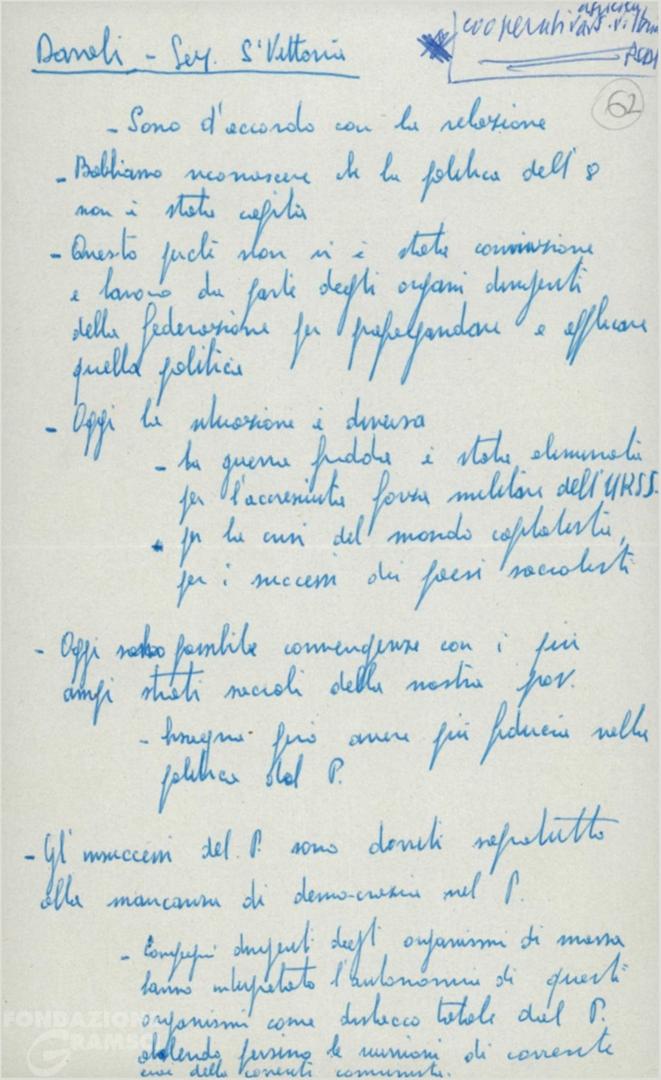 Danoli - Sez. S. Vittoria
agricola
cooperativa S. Vittoria
62
- Sono d'accordo con la relazione
- Bobbiamo riconoscere che la politica dell'8
non è stata capita
- Questo perché non vi è stata convinzione
e lavoro da parte degli organi dirigenti
della federazione per propagandare e applicare
quella politica
- Oggi la situazione è diversa
- la guerra fredda è stata eliminata
per l'accresciuta forza militare dell'URSS.
- per la crisi del mondo capitalista,
per i successi dei paesi socialisti
- Oggi sono possibile convergenze con i più
ampi strati sociali della nostra pop.
- bisogna però avere più fiducia nella
politica del P.
- Gli insuccessi del P. sono dovuti sopratutto
alla mancanza di democrazia nel P.
- Compagni dirigenti degli organismi di massa
hanno interpretato l'autonomia di questi
organismi come distacco totale dal P.
persino le riunioni di corrente
cioè della corrente comunista.
FONDAZIONE
GRAMSCI